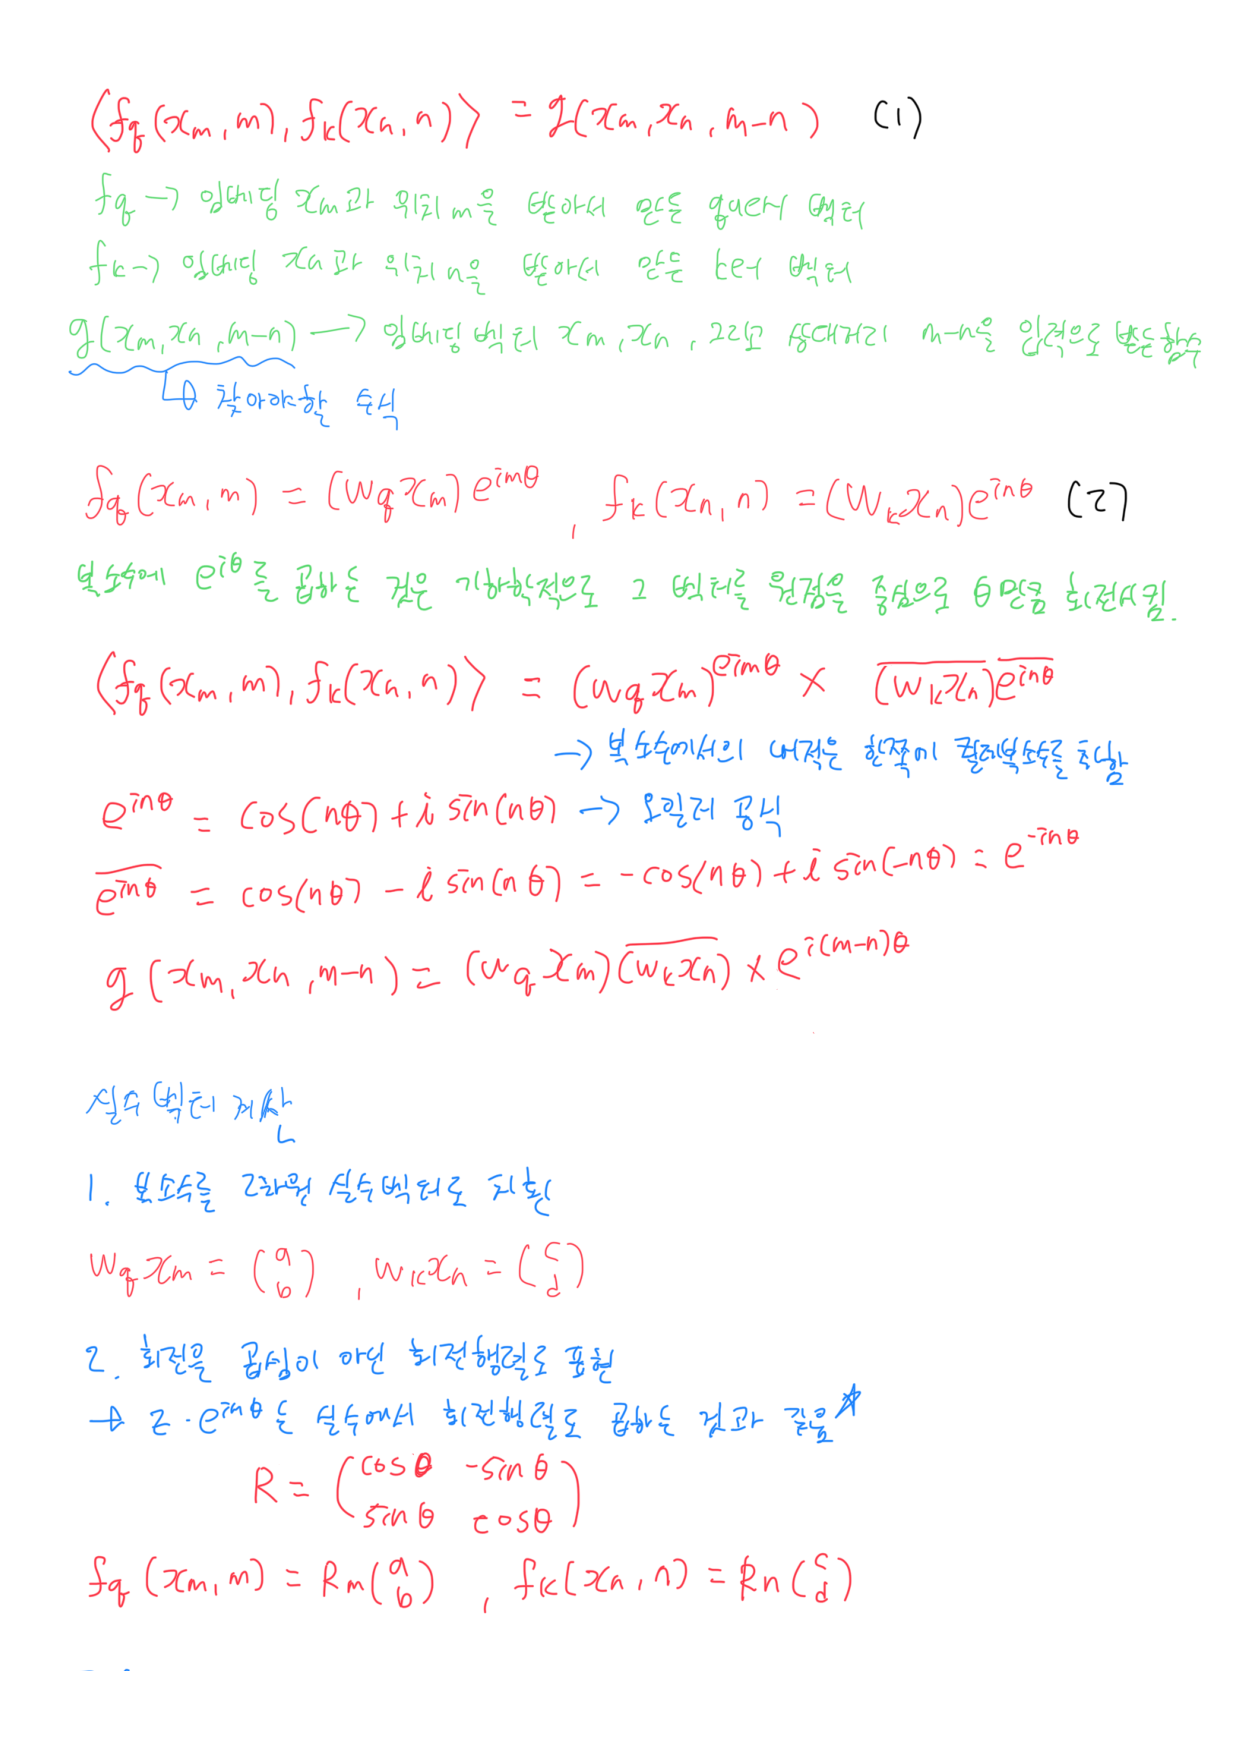 ⟨fq(xm, m), fk(xn, n)⟩ = g(xm, xn, m-n) (1)
fq → 임베딩 xm과 위치 m을 받아서 만든 query 벡터
fk → 임베딩 xn과 위치 n을 받아서 만든 key 벡터
g(xm, xn, m-n) → 임베딩 벡터 xm, xn, 그리고 상대거리 m-n을 입력으로 받는 함수
↳ 찾아야할 수식
fq(xm, m) = (Wq xm) e^{imθ} , fk(xn, n) = (Wk xn) e^{inθ} (2)
복소수에 e^{iθ}를 곱하는 것은 기하학적으로 그 벡터를 원점을 중심으로 θ만큼 회전시킴.
⟨fq(xm, m), fk(xn, n)⟩ = (Wq xm)^{e^{imθ}} × \overline{(Wk xn)} \overline{e^{inθ}}
→ 복소수에서의 내적은 한쪽에 켤레복소수를 취함
e^{inθ} = cos(nθ) + i sin(nθ) → 오일러 공식
\overline{e^{inθ}} = cos(nθ) - i sin(nθ) = -cos(nθ) + i sin(-nθ) = e^{-inθ}
g(xm, xn, m-n) = (Wq xm) \overline{(Wk xn)} × e^{i(m-n)θ}
실수 벡터 계산
1. 복소수를 2차원 실수벡터로 치환
Wq xm = (a b) , Wk xn = (c d)
2. 회전을 곱셈이 아닌 회전행렬로 표현
→ z · e^{inθ}는 실수에서 회전행렬로 곱하는 것과 같음 ☆
R = (cosθ -sinθ
sinθ cosθ)
fq(xm, m) = Rm (a b) , fk(xn, n) = Rn (c d)